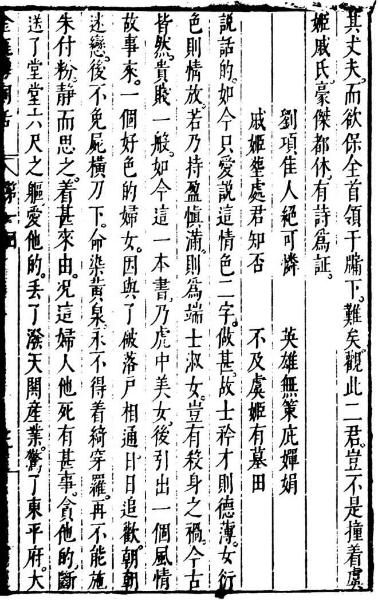 其丈夫而欲保全首領于牖下難矣觀此二君豈不是撞着虞
姬戚氏豪傑都休有詩爲証
劉項佳人絕可憐 英雄無策庇嬋娟
戚姬塟處君知否 不及虞姬有墓田
說話的如今只愛說這情色二字做甚故士矜才則德薄女衒
色則情放若乃持盈慎滿則爲端士淑女豈有殺身之禍今古
皆然貴賤一般如今這一本書乃虎中美女後引出一個風情
故事來一個好色的婦女因與了破落戶相通日日追歡朝朝
迷戀後不免屍橫刀下命染黄泉永不得着綺穿羅再不能施
朱付粉靜而思之着甚來由况這婦人他死有甚事貪他的斷
送了堂堂六尺之軀愛他的丢了潑天閧産業驚了東平府大